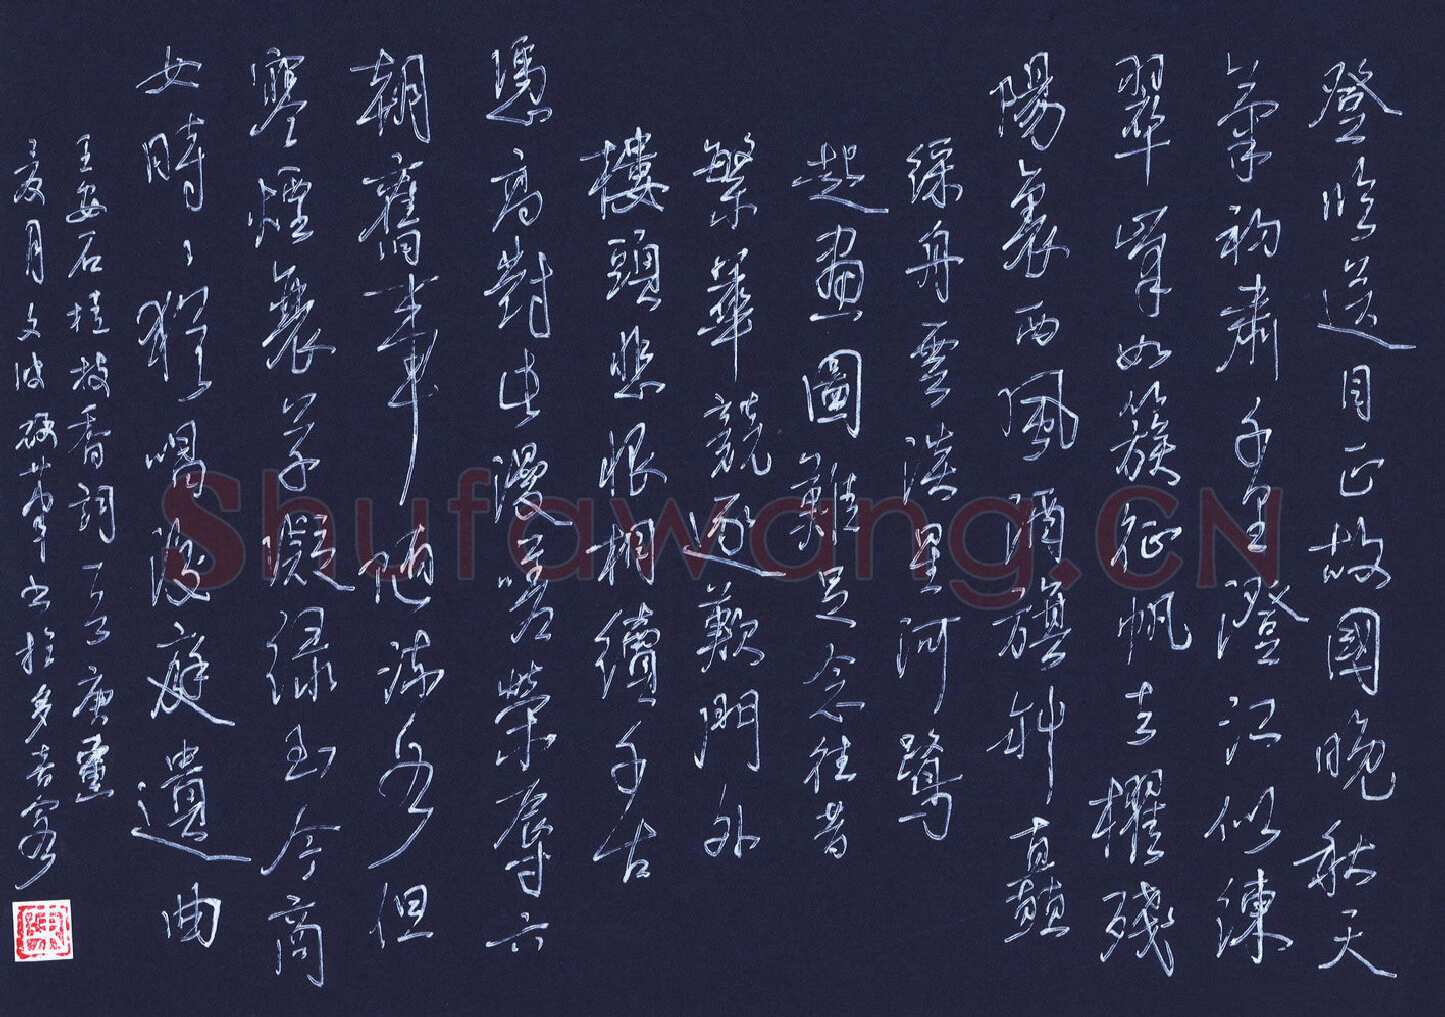 登臨送目正故國晚秋天
氣初肅千里澄江似練
翠峯如簇征帆去櫂殘
陽裏西風酒旗斜矗
綵舟雲淡星河鷺
起畫圖難足念往昔
繁華競逐歎門外
樓頭悲恨相續千古
憑高對此漫嗟榮辱六
朝舊事隨流水但
寒煙衰草凝綠至今商
女時〻猶唱後庭遺曲
王安石桂枝香詞一首庚寅
夏月文波硬筆書於多
Shufawang.CN